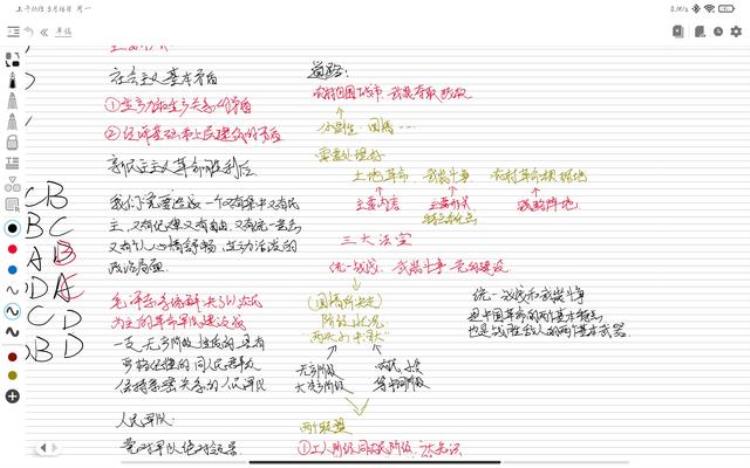 社会主义基本矛盾
①生产力和生产关系的矛盾
②经济基础和上层建筑的矛盾
新民主主义革命胜利后
我们需要造成一个又有集中又有民
主，又有纪律又有自由，又有统一意志
又有个人心情舒畅，生动活泼的
政治局面.
毛泽东系统解决了以农民
为主的革命军队建设成
一支无产阶级性质的具有
严格纪律的同人民群众
保持亲密关系的人民军队
人民军队.
党对军队绝对领导
道路:
农村包围城市 武装夺取政权
必要性 国情…
需要处理好
土地革命 武装斗争 农村革命根据地
主要内容 主要形式 战略阵地
三大法宝
统一战线 武装斗争 党的建设
(国情所决定)
阶级状况
"两头小中间大"
无产阶级 农民 小资
大资产阶级 等中间阶级
两个联盟
①工人阶级同农民阶级、
统一战线和武装斗争
是中国革命的两个基本特点
也是战胜敌人的两个基本武器.
CB
BC
AB
DA
CD
BD